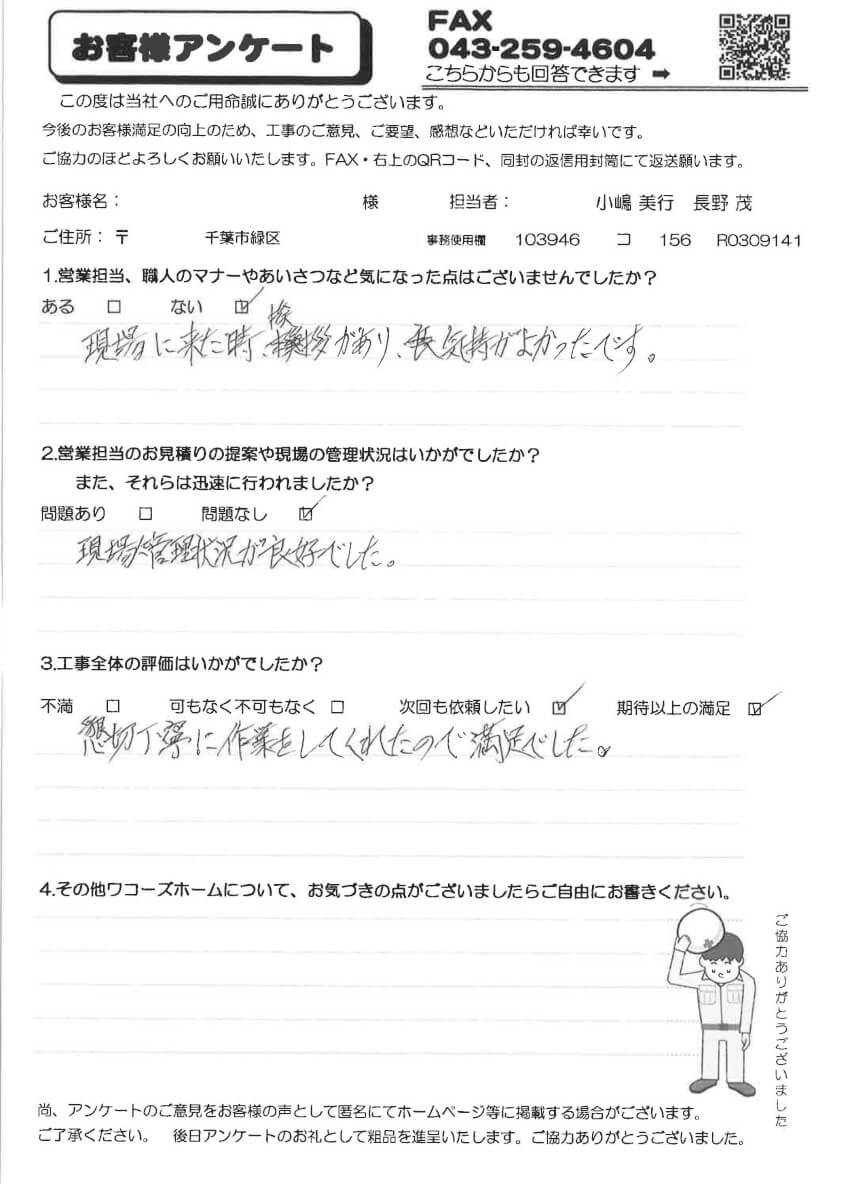 お客様アンケート
FAX
043-259-4604
こちらからも回答できます ➡
この度は当社へのご用命誠にありがとうございます。
今後のお客様満足の向上のため、工事のご意見、ご要望、感想などいただければ幸いです。
ご協力のほどよろしくお願いいたします。FAX・右上のQRコード、同封の返信用封筒にて返送願います。
お客様名： 様 担当者： 小嶋 美行 長野 茂
ご住所：〒 千葉市緑区 事務使用欄 103946 コ 156 R0309141
1.営業担当、職人のマナーやあいさつなど気になった点はございませんでしたか？
ある □ ない ☑
現場に来た時、挨拶があり、気持がよかったです。
2.営業担当のお見積りの提案や現場の管理状況はいかがでしたか？
また、それらは迅速に行われましたか？
問題あり □ 問題なし ☑
現場管理状況が良好でした。
3.工事全体の評価はいかがでしたか？
不満 □ 可もなく不可もなく □ 次回も依頼したい ☑ 期待以上の満足 ☑
懇切丁寧に作業をしてくれたので満足でした。
4.その他ワコーズホームについて、お気づきの点がございましたらご自由にお書きください。
ご協力ありがとうございました
尚、アンケートのご意見をお客様の声として匿名にてホームページ等に掲載する場合がございます。
ご了承ください。 後日アンケートのお礼として粗品を進呈いたします。ご協力ありがとうございました。